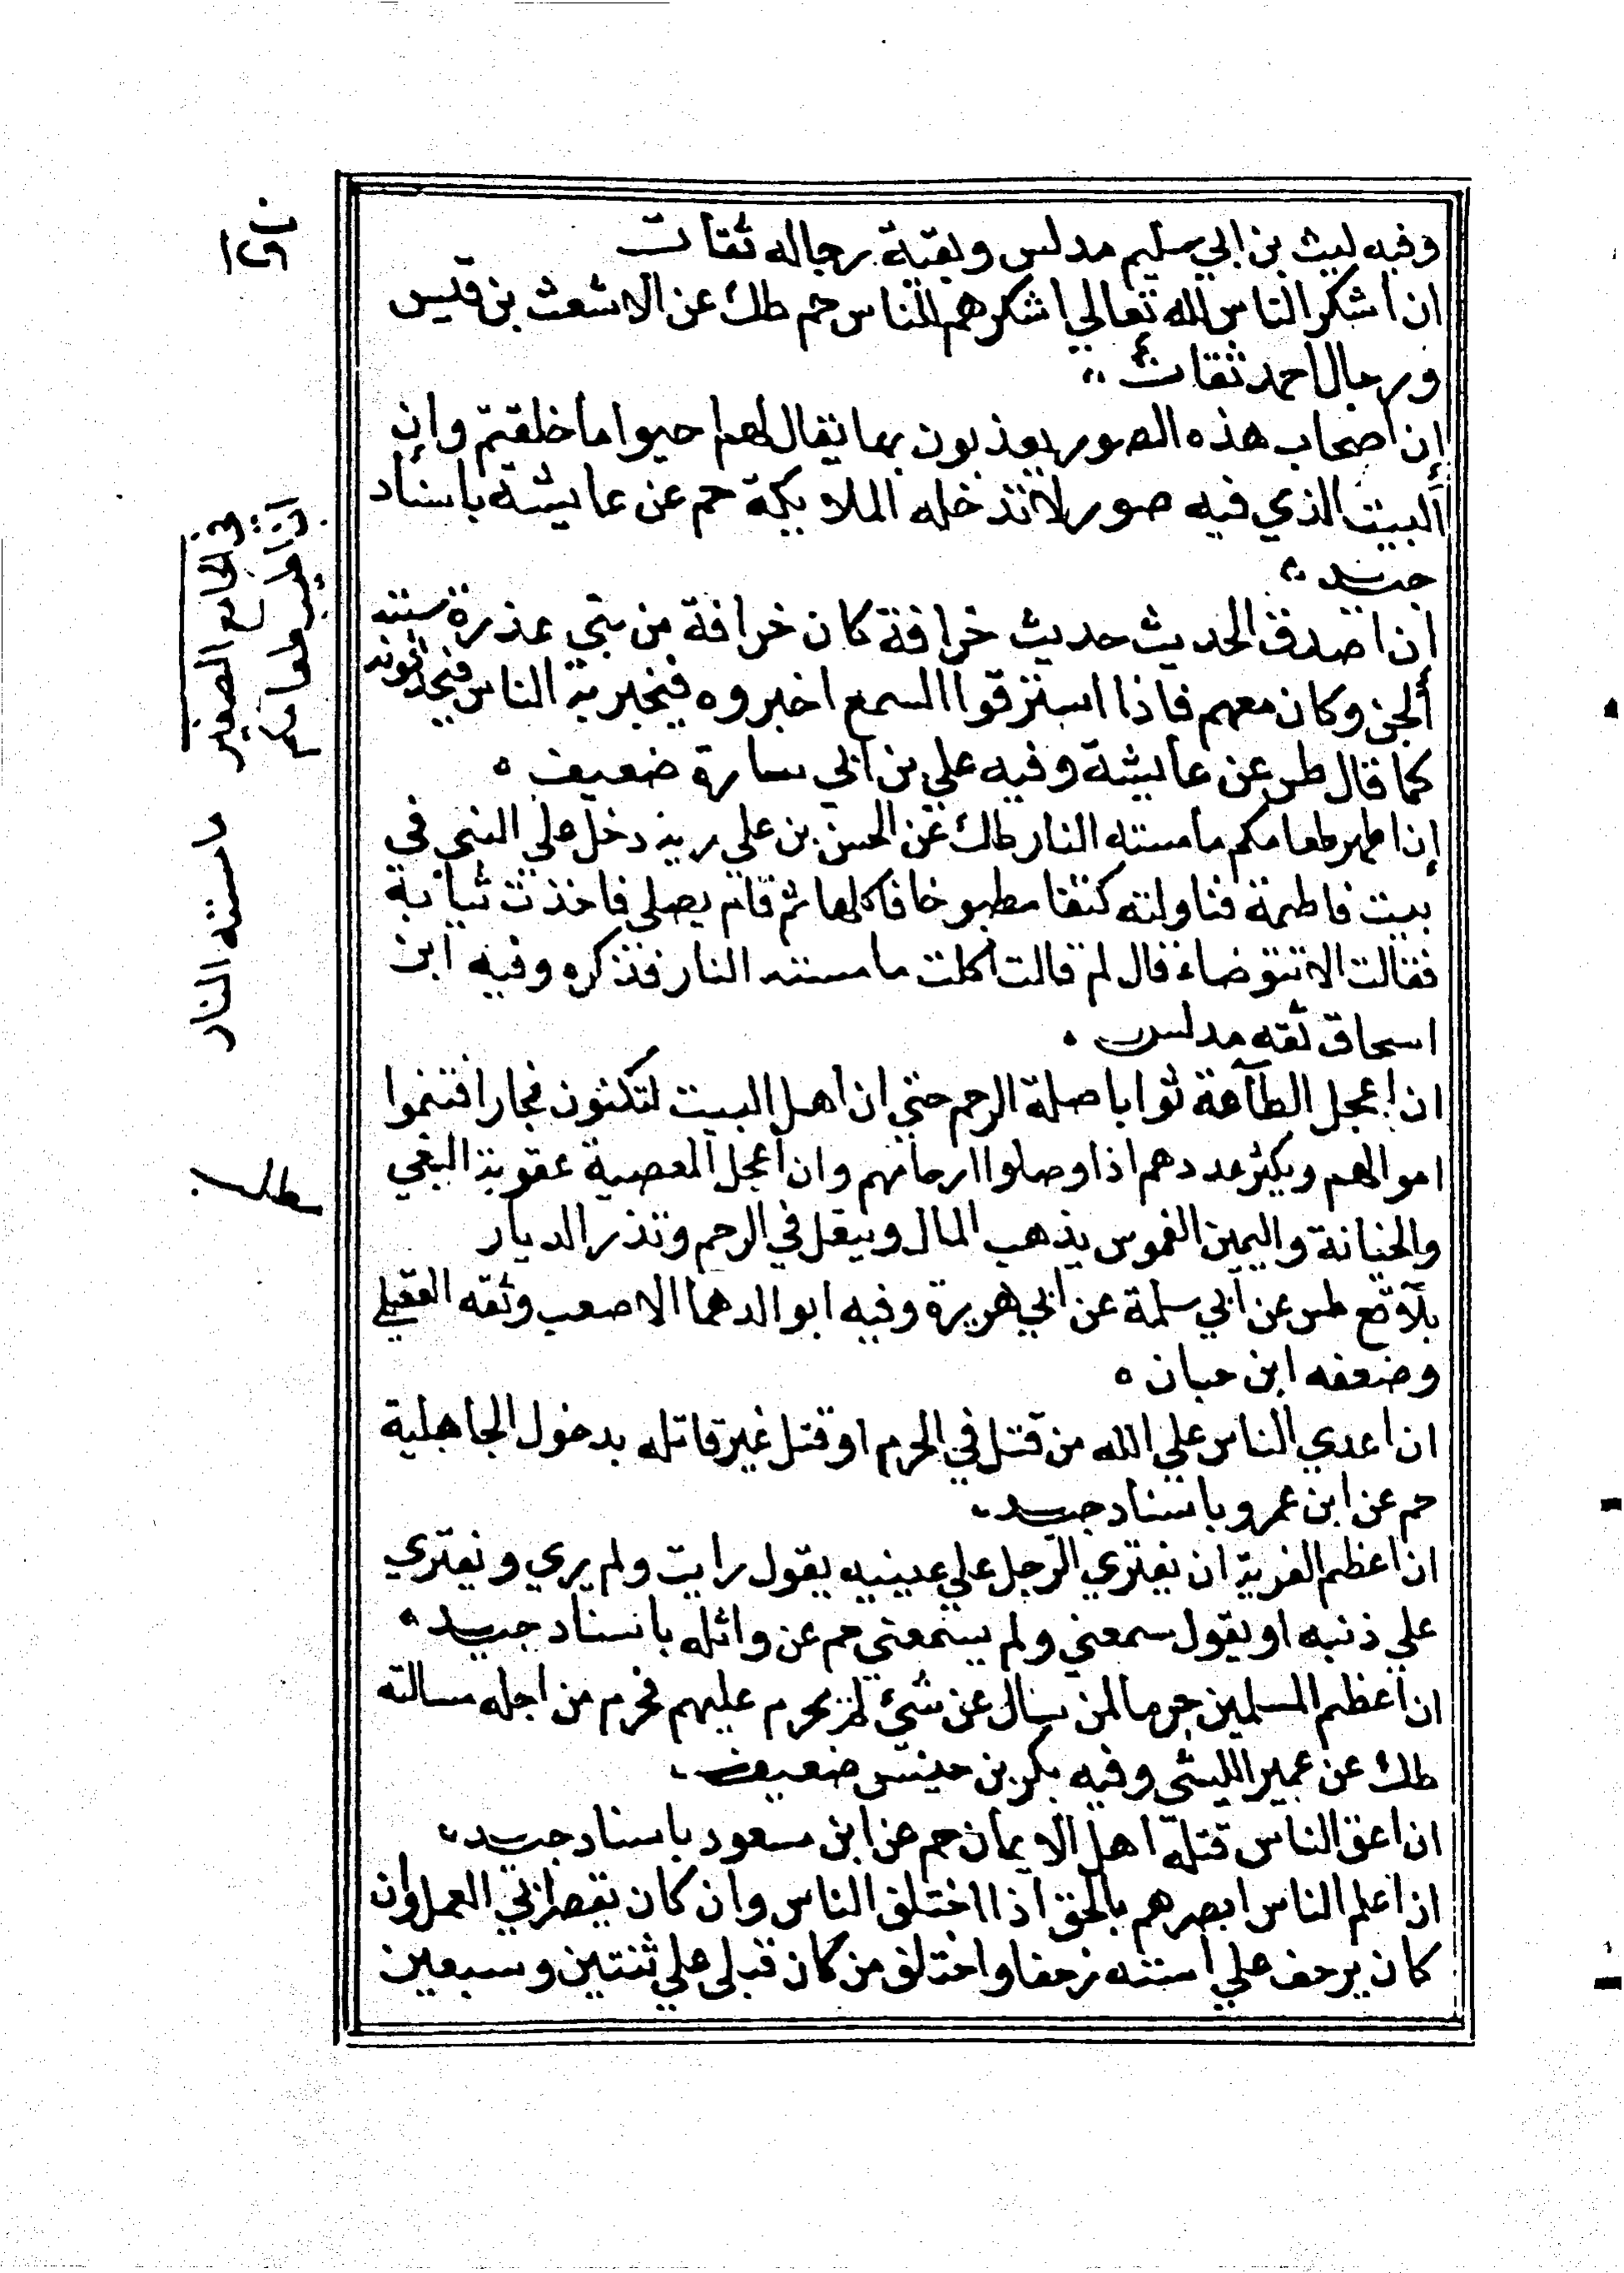 وفيه ليث بن ابي سليم مدلس وبقية رجاله ثقات
ان اشكر الناس لله تعالي اشكرهم للناس حم طك عن الاشعث بن قيس
ورجال احمد ثقات
إن اصحاب هذه الصور يعذبون بها يقال لهم احيوا ما خلقتم وإن
البيت الذي فيه صور لا تدخله الملايكة حم عن عايشة باسناد
جيد
ان اصدق الحديث حديث خرافة كان خرافة من بني عذرة سبته
الجن وكان معهم فاذا استرقوا السمع اخبروه فيخبر به الناس فيجدونه
كما قال طس عن عايشة وفيه علي بن ابي سارة ضعيف ه
إن اطهر طعامكم ما مسته النار طك عن الحسن بن علي انه دخل علي النبي في
بيت فاطمة فناولته كتفا مطبوخا فاكلها ثم قام يصلي فاخذت ثيابه
فقالت الا تتوضاء قال لم قالت اكلت ما مسته النار فذكره وفيه ابن
اسحاق ثقه مدلس
ان اعجل الطاعة ثوابا صلة الرحم حتي ان اهل البيت لتكنون فجارا فتنموا
اموالهم ويكثر عددهم اذا وصلوا ارحامهم وان اعجل المعصية عقوبة البغي
والخيانة واليمين الغموس يذهب المال ويقل في الرحم وتذر الديار
بلاقع طس عن ابي سلمة عن ابي هريرة وفيه ابو الدهما الاصعب وثقه العقيلي
وضعفه ابن حبان ه
ان اعدي الناس علي الله من قتل في الحرم او قتل غير قاتله بدخول الجاهلية
حم عن ابن عمرو باسناد جيد
ان اعظم الفرية ان يفتري الرجل علي عينيه يقول رايت ولم يري و يفتري
علي ذنبه او يقول سمعني ولم يسمعني حم عن واثله باسناد جيد
ان اعظم المسلمين جرما لمن سال عن شئ لم يحرم عليهم فحرم من اجله مسالته
طك عن عمير الليثي وفيه بكر بن حنيس ضعيف
ان اعق الناس قتلة اهل الايمان حم عن ابن مسعود باسناد جيد
ان اعلم الناس ابصرهم بالحق اذا اختلف الناس وان كان يقصر في العمل وان
كان يزحف علي استه زحفا واختلف من كان قبلي علي ثنتين وسبعين
في الجامع الصغير
ان اطيب طعامكم
ما مسته النار
مطلب